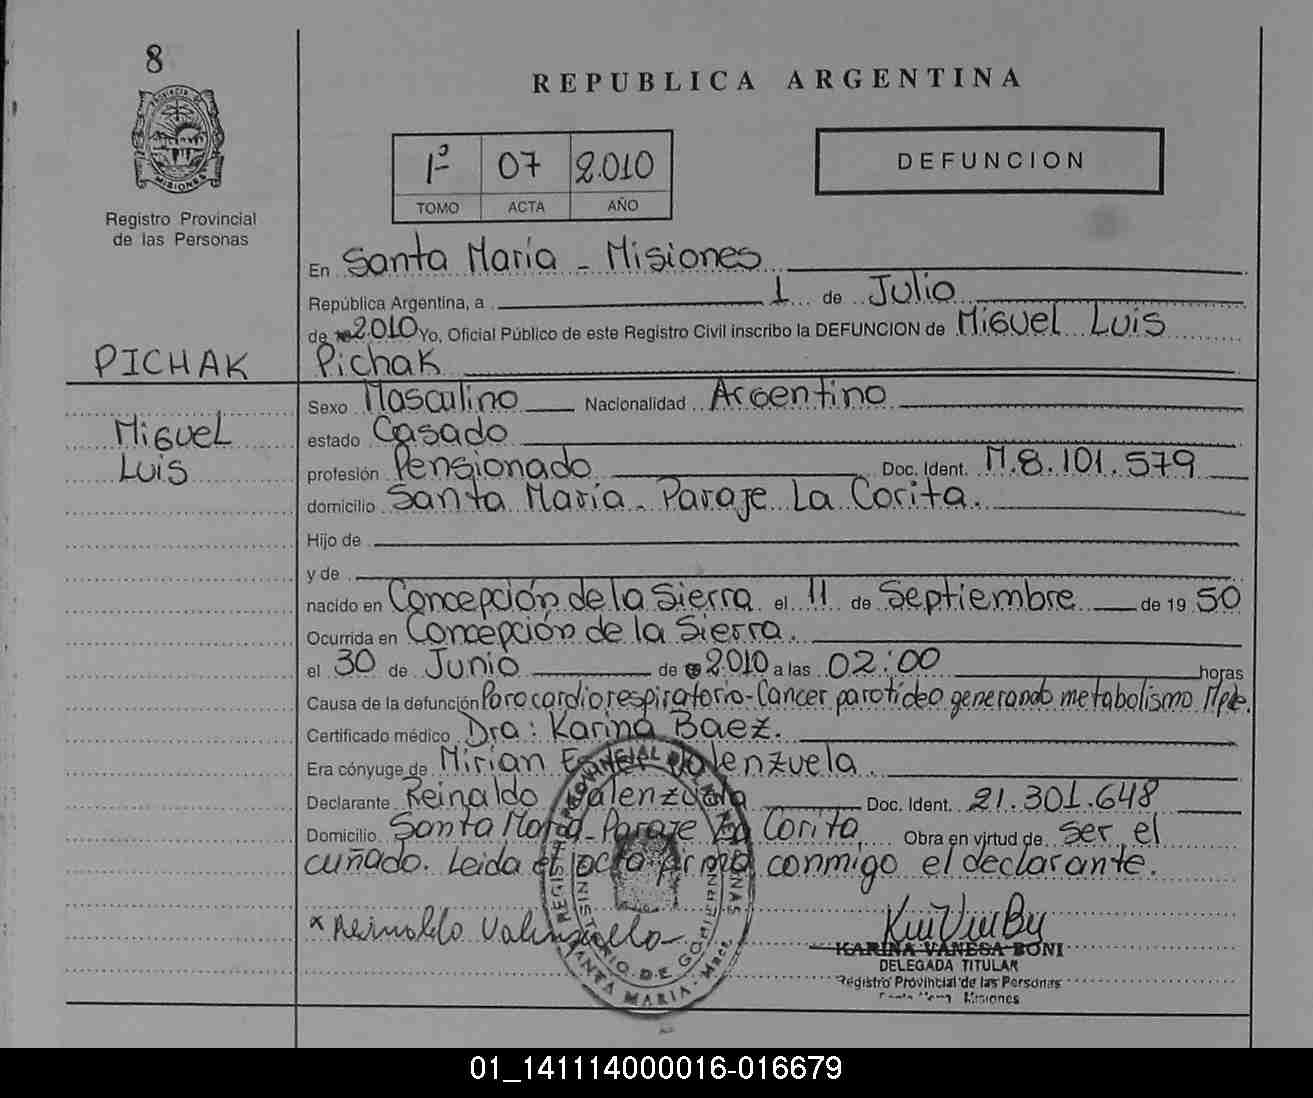 8
REPUBLICA ARGENTINA
PROVINCIA DE
MISIONES
Registro Provincial
de las Personas
1º 07 2.010
TOMO ACTA AÑO
DEFUNCION
En Santa María - Misiones
República Argentina, a 1 de Julio
de 2010 Yo, Oficial Público de este Registro Civil inscribo la DEFUNCION de Miguel Luis
PICHAK
Pichak
Miguel
Luis
Sexo Masculino Nacionalidad Argentino
estado Casado
profesión Pensionado Doc. Ident. M.8.101.579
domicilio Santa María - Paraje La Corita.
Hijo de
y de
nacido en Concepción de la Sierra el 11 de Septiembre de 19 50
Ocurrida en Concepción de la Sierra.
el 30 de Junio de 2010 a las 02:00 horas
Causa de la defunción Parocardiorespiratorio-Cancer parotídeo generando metabolismo
Certificado médico Dra: Karina Baez.
Era cónyuge de Mirian Valenzuela.
Declarante Reinaldo Valenzuela Doc. Ident. 21.301.648
Domicilio Santa María - Paraje La Corita, Obra en virtud de ser el
cuñado. Leida el acta firma conmigo el declarante.
x Reinaldo Valenzuela
KARINA VANESA BONI
DELEGADA TITULAR
Registro Provincial de las Personas
Santa María Misiones
REGISTRO PROVINCIAL DE LAS PERSONAS
MINISTERIO DE GOBIERNO
SANTA MARIA - Mnes.
01_141114000016-016679